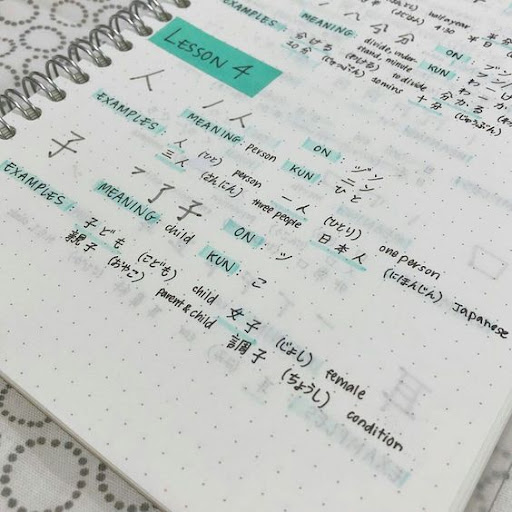 half a year
ノ 八 分 分
EXAMPLES: MEANING: divide, understand, minute
ON:
KUN: わ
分ける to divide 分かる
30分 30 mins 十分 (じゅうぶん)
LESSON 4
人 ノ 人
MEANING: person ON: ジン ニン
KUN: ひと
EXAMPLES: 人 (ひと) person 一人 (ひとり) one person
三人 (さんにん) three people 日本人 (にほんじん) Japanese
子 フ 了 子
MEANING: child ON: シ
KUN: こ
EXAMPLES: 子ども (こども) child 女子 (じょし) female
親子 (おやこ) parent & child 調子 (ちょうし) condition